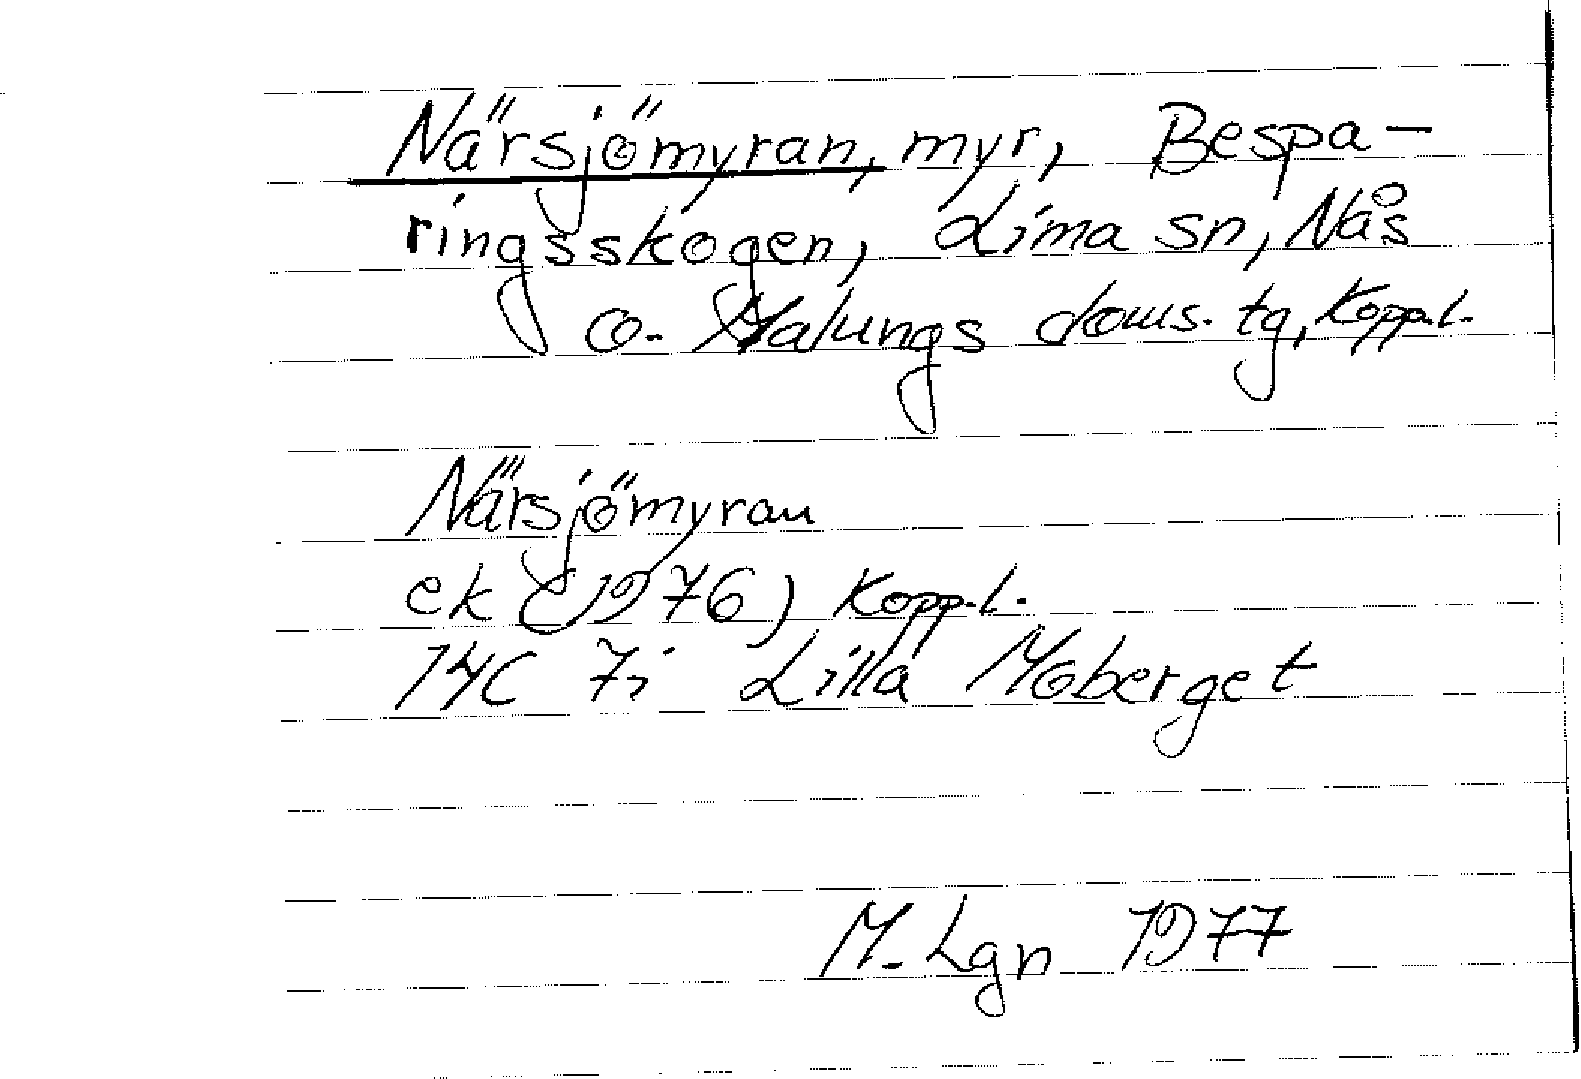 Närsjömyran, myr, Bespa-
ringsskogen, Lima sn, Nås
o. Malungs doms. tg, Kopp.l.
Närsjömyran
ek (1976) Kopp.l.
14C 7i Lilla Moberget
M. Lgn 1977